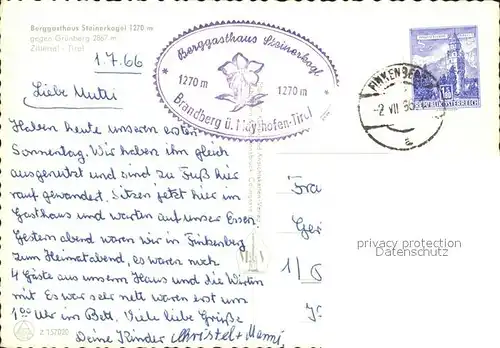 Berggasthaus Steinerkogel 1270 m
gegen Grünberg 2867 m
Zillertal - Tirol
1.7.66
Berggasthaus Steinerkogl
1270 m
1270 m
Brandberg ü. Mayrhofen-Tirol
FINKENBERG
-2 VII 66
a
REPUBLIK ÖSTERREICH
Liebe Mutti
Haben heute unseren ersten
Sonnentag. Wir haben ihn gleich
ausgenutzt und sind zu Fuß hier
rauf gewandert. Sitzen jetzt hier im
Gasthaus und warten auf unser Essen
Gestern abend waren wir in Finkenberg
zum Heimatabend, es waren noch
4 Gäste aus unserm Haus und die Wirtin
mit. Es war sehr nett waren erst um
1 00 Uhr im Bett. Viele liebe Grüße
Deine Kinder Christel + Manni
Frau
Ger
1/
privacy protection
on DELCAMPE
Z 157020